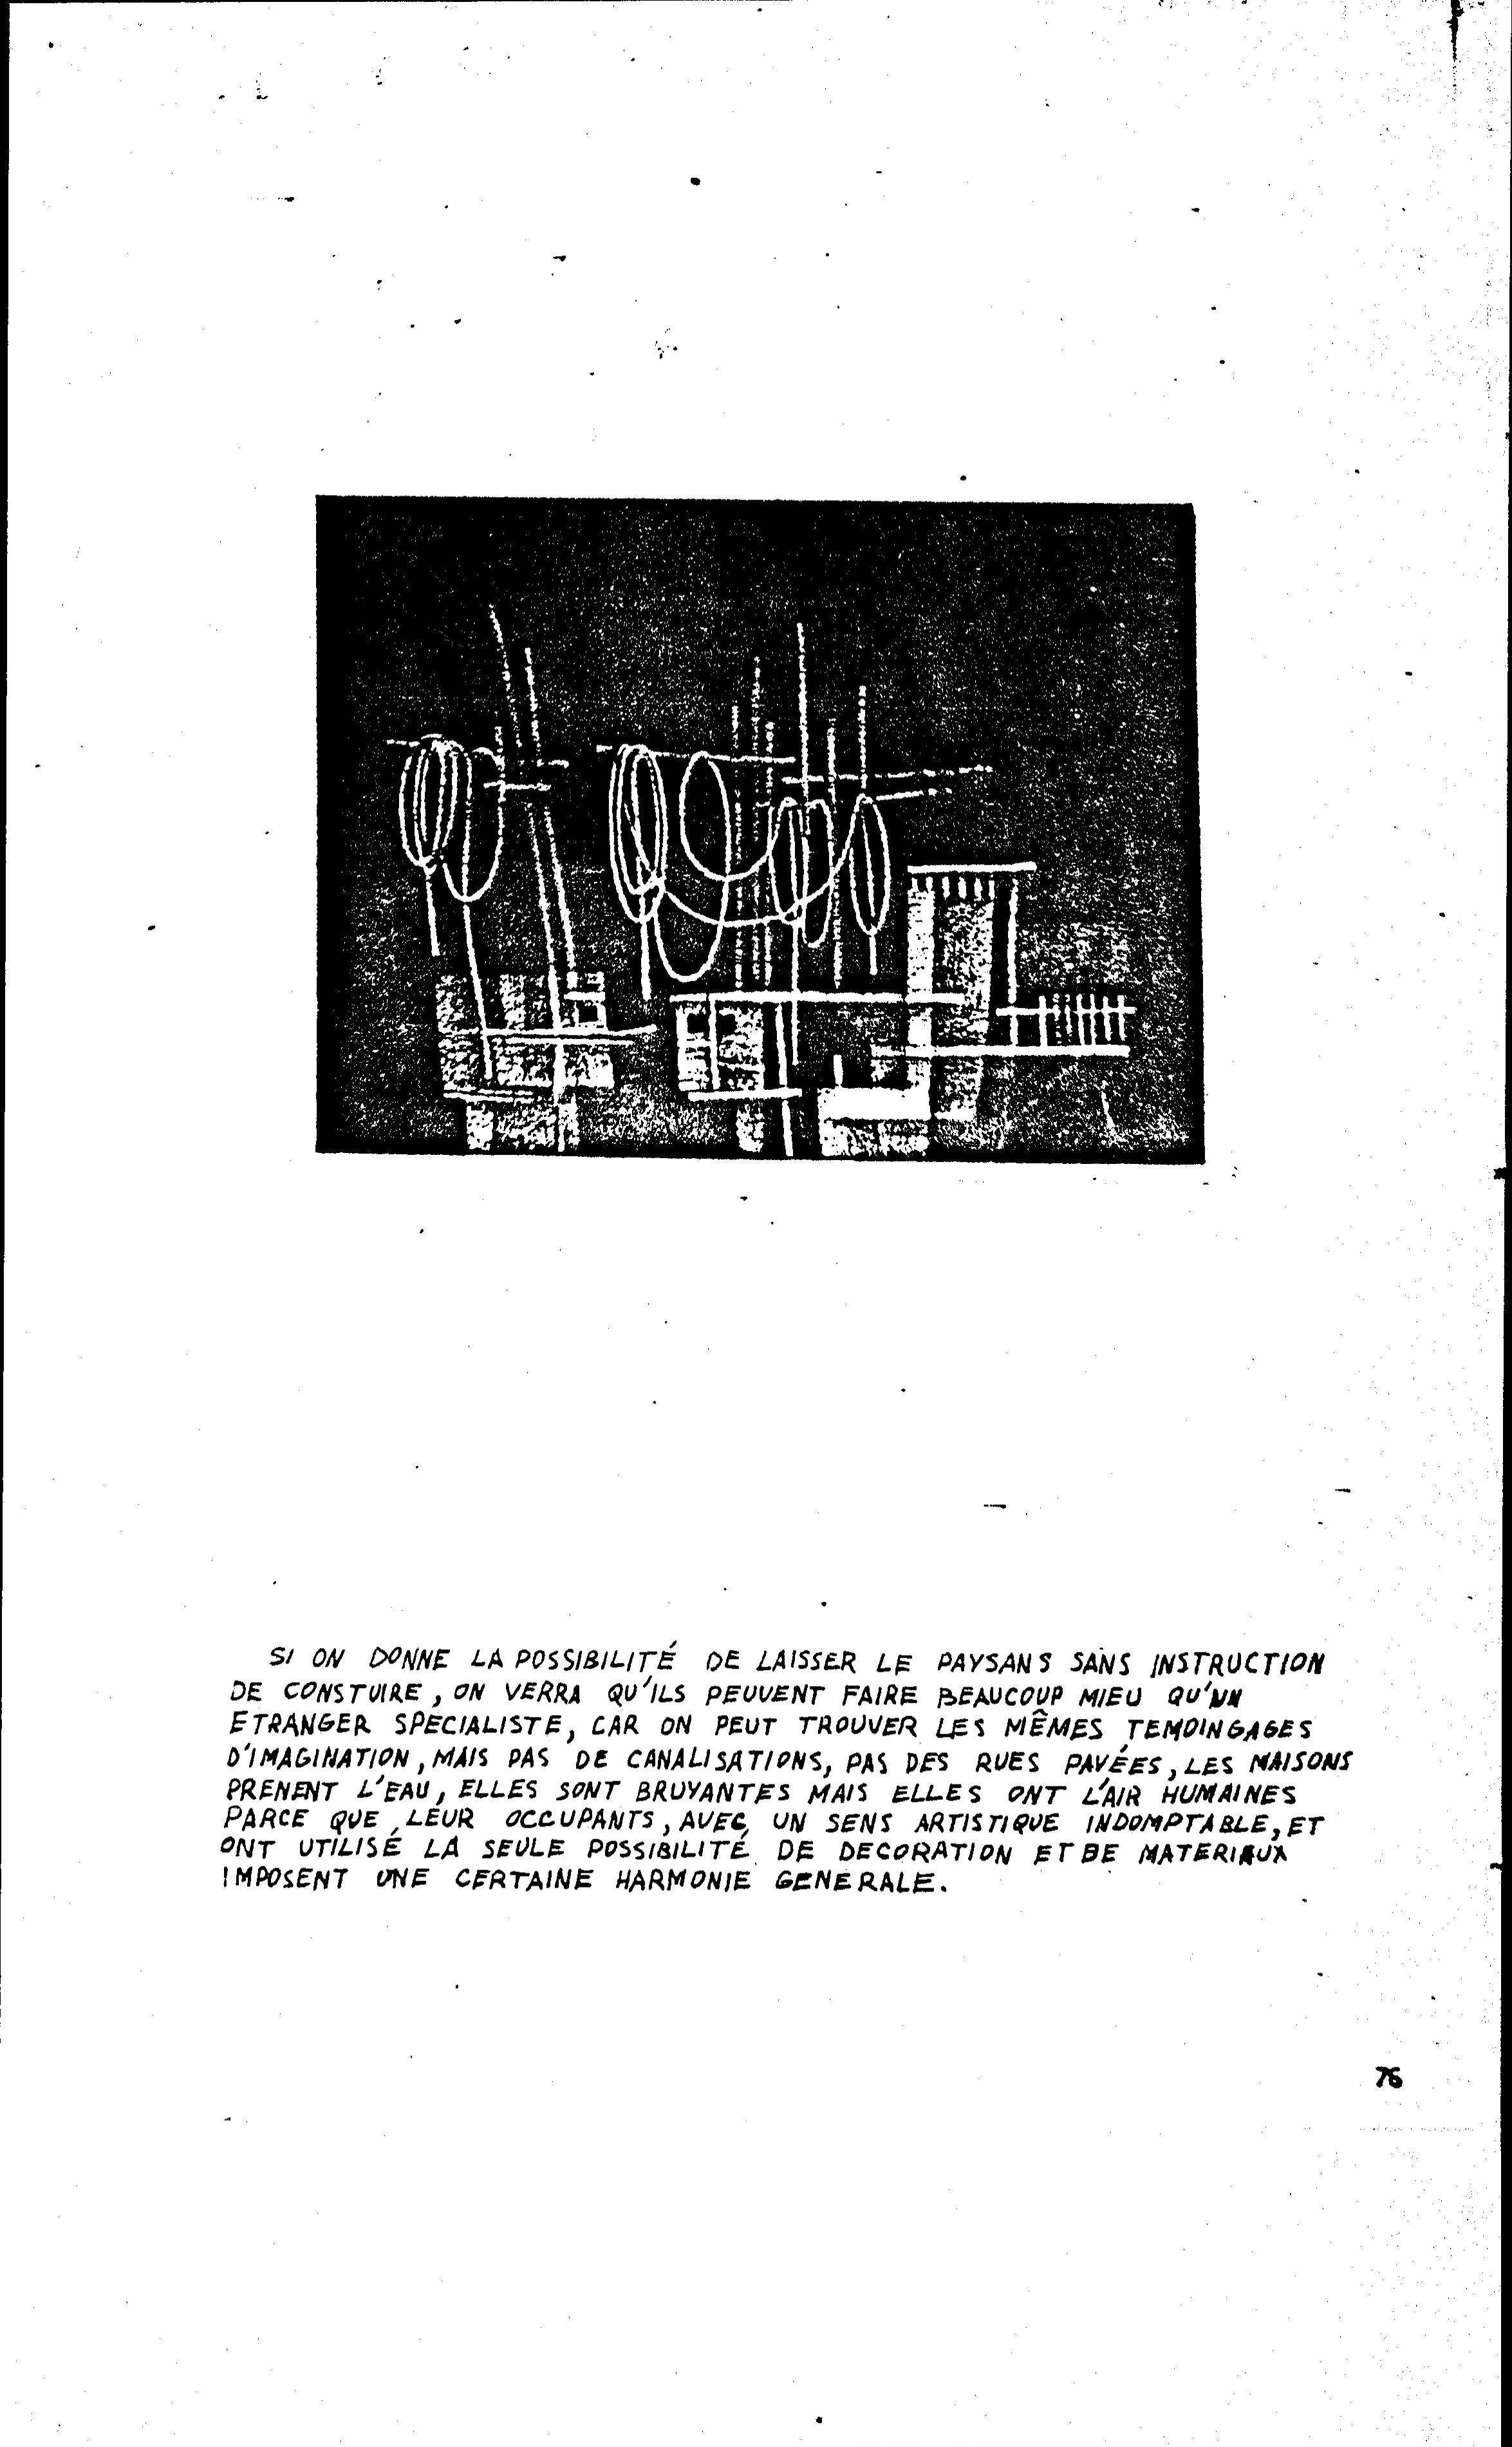 SI ON DONNE LA POSSIBILITÉ DE LAISSER LE PAYSANS SANS INSTRUCTION
DE CONSTUIRE, ON VERRA QU'ILS PEUVENT FAIRE BEAUCOUP MIEU QU'UN
ETRANGER SPECIALISTE, CAR ON PEUT TROUVER LES MÊMES TEMOINGAGES
D'IMAGINATION, MAIS PAS DE CANALISATIONS, PAS DES RUES PAVÉES, LES MAISONS
PRENENT L'EAU, ELLES SONT BRUYANTES MAIS ELLES ONT L'AIR HUMAINES
PARCE QUE LEUR OCCUPANTS, AVEC UN SENS ARTISTIQUE INDOMPTABLE, ET
ONT UTILISÉ LA SEULE POSSIBILITÉ DE DECORATION ET DE MATERIAUX
IMPOSENT UNE CERTAINE HARMONIE GENERALE.